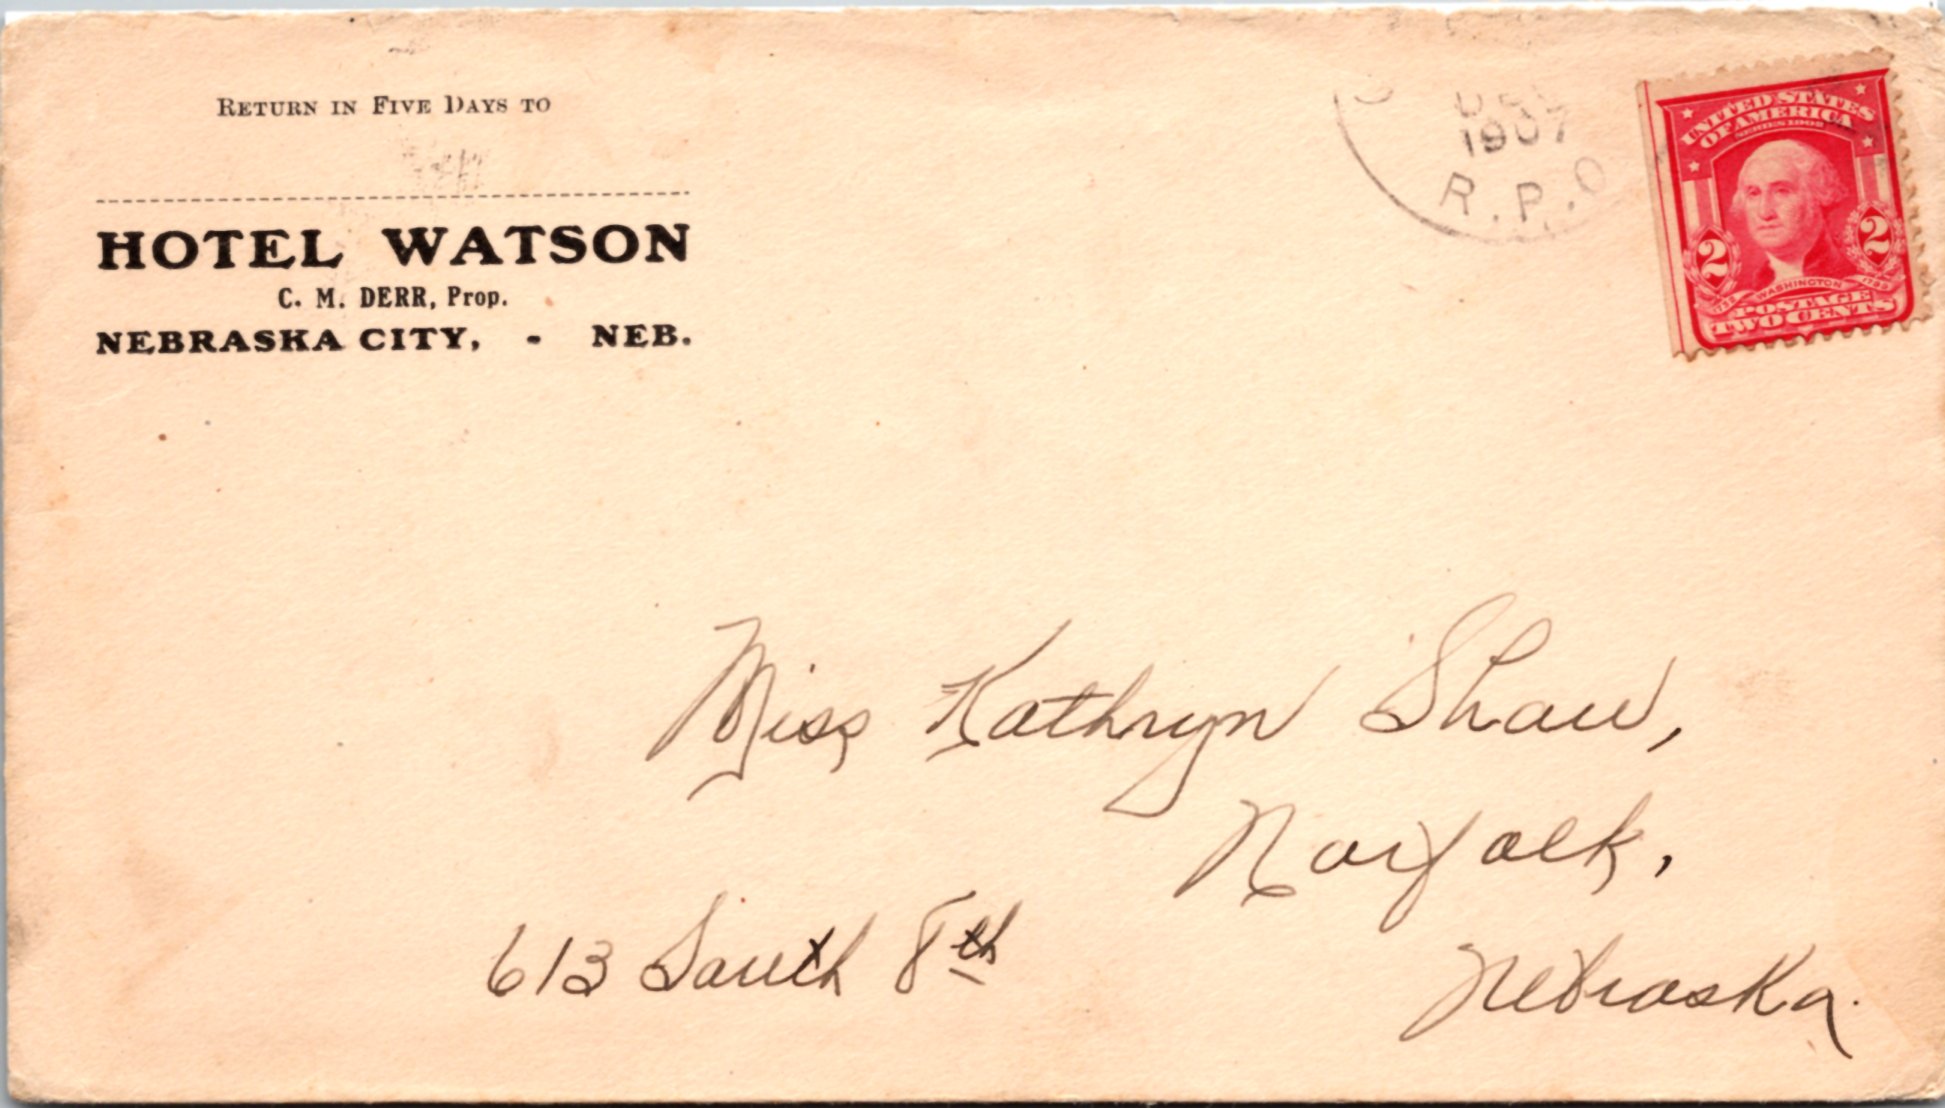 RETURN IN FIVE DAYS TO
HOTEL WATSON
C. M. DERR, Prop.
NEBRASKA CITY, - NEB.
1907
R.P.O
UNITED STATES
OF AMERICA
SERIES 1902
2 2
1732 WASHINGTON 1799
POSTAGE
TWO CENTS
Miss Kathryn Shaw,
Norfolk,
613 South 8th
Nebraska.